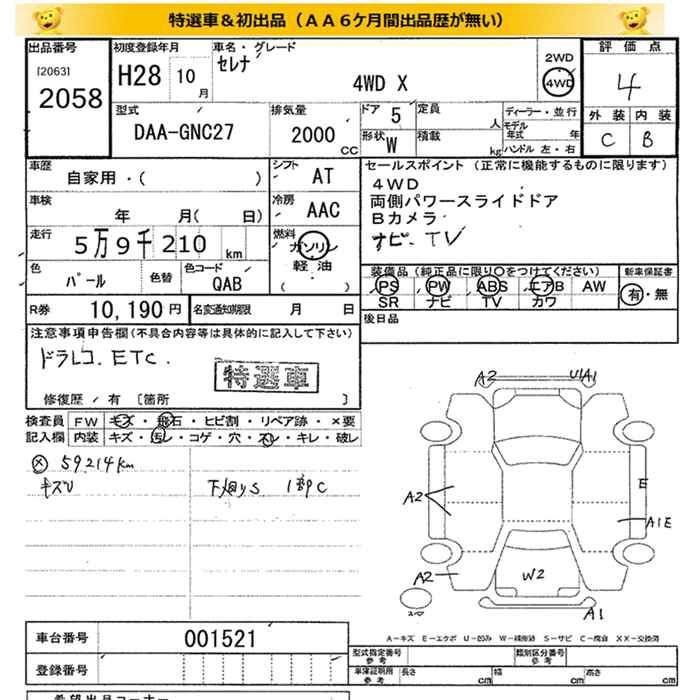 特選車&初出品（AA6ケ月間出品歴が無い）
出品番号 初度登録年月 車名・グレード 評価点
[2063] セレナ 2WD
2058 H28 10月 4WD X 4WD 4
型式 排気量 ドア 5 定員 人 ディーラー・並行 外装 内装
DAA-GNC27 2000 CC 形状 W 積載 kg モデル年式 年 C B
ハンドル 左・右
車歴 シフト セールスポイント（正常に機能するものに限ります）
自家用・( ) AT 4WD
車検 冷房 両側パワースライドドア
年 月( 日) AAC Bカメラ
走行 燃料 ナビ・TV
5万9千210km ガソリン
軽油
( )
色 色替 色コード 装備品（純正品に限り○をつけてください） 新車保証書
パール QAB PS PW ABS エアB AW 有・無
SR ナビ TV カワ
R券 10,190円 名変通知期限 月 日 後日品
注意事項申告欄（不具合内容等は具体的に記入して下さい）
ドラレコ. ETC.
特選車
修復歴／有 [箇所 ]
検査員 FW キズ・飛石・ヒビ割・リペア跡・×要
記入欄 内装 キズ・汚レ・コゲ・穴・スレ・キレ・破レ
59214km
キズU 下廻りS 1部C
A2 U1A1
A2 E
A1E
A2 W2
A1
A-キズ E-エクボ U-凹み W-補修跡 S-サビ C-腐食 XX-交換済
車台番号 001521
型式指定番号 参考 類別区分番号 参考
登録番号 車庫証明用 参考 長さ cm 幅 cm 高さ cm
希望出品コーナー